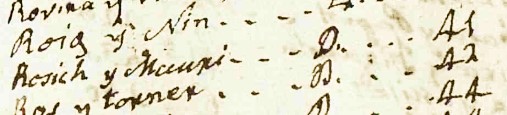 Rovira y
Roig y Nin
Rosich y Mauri - - - D. . . . 41
Ros y torner . . . . B. . . . 42
B. . . . 44